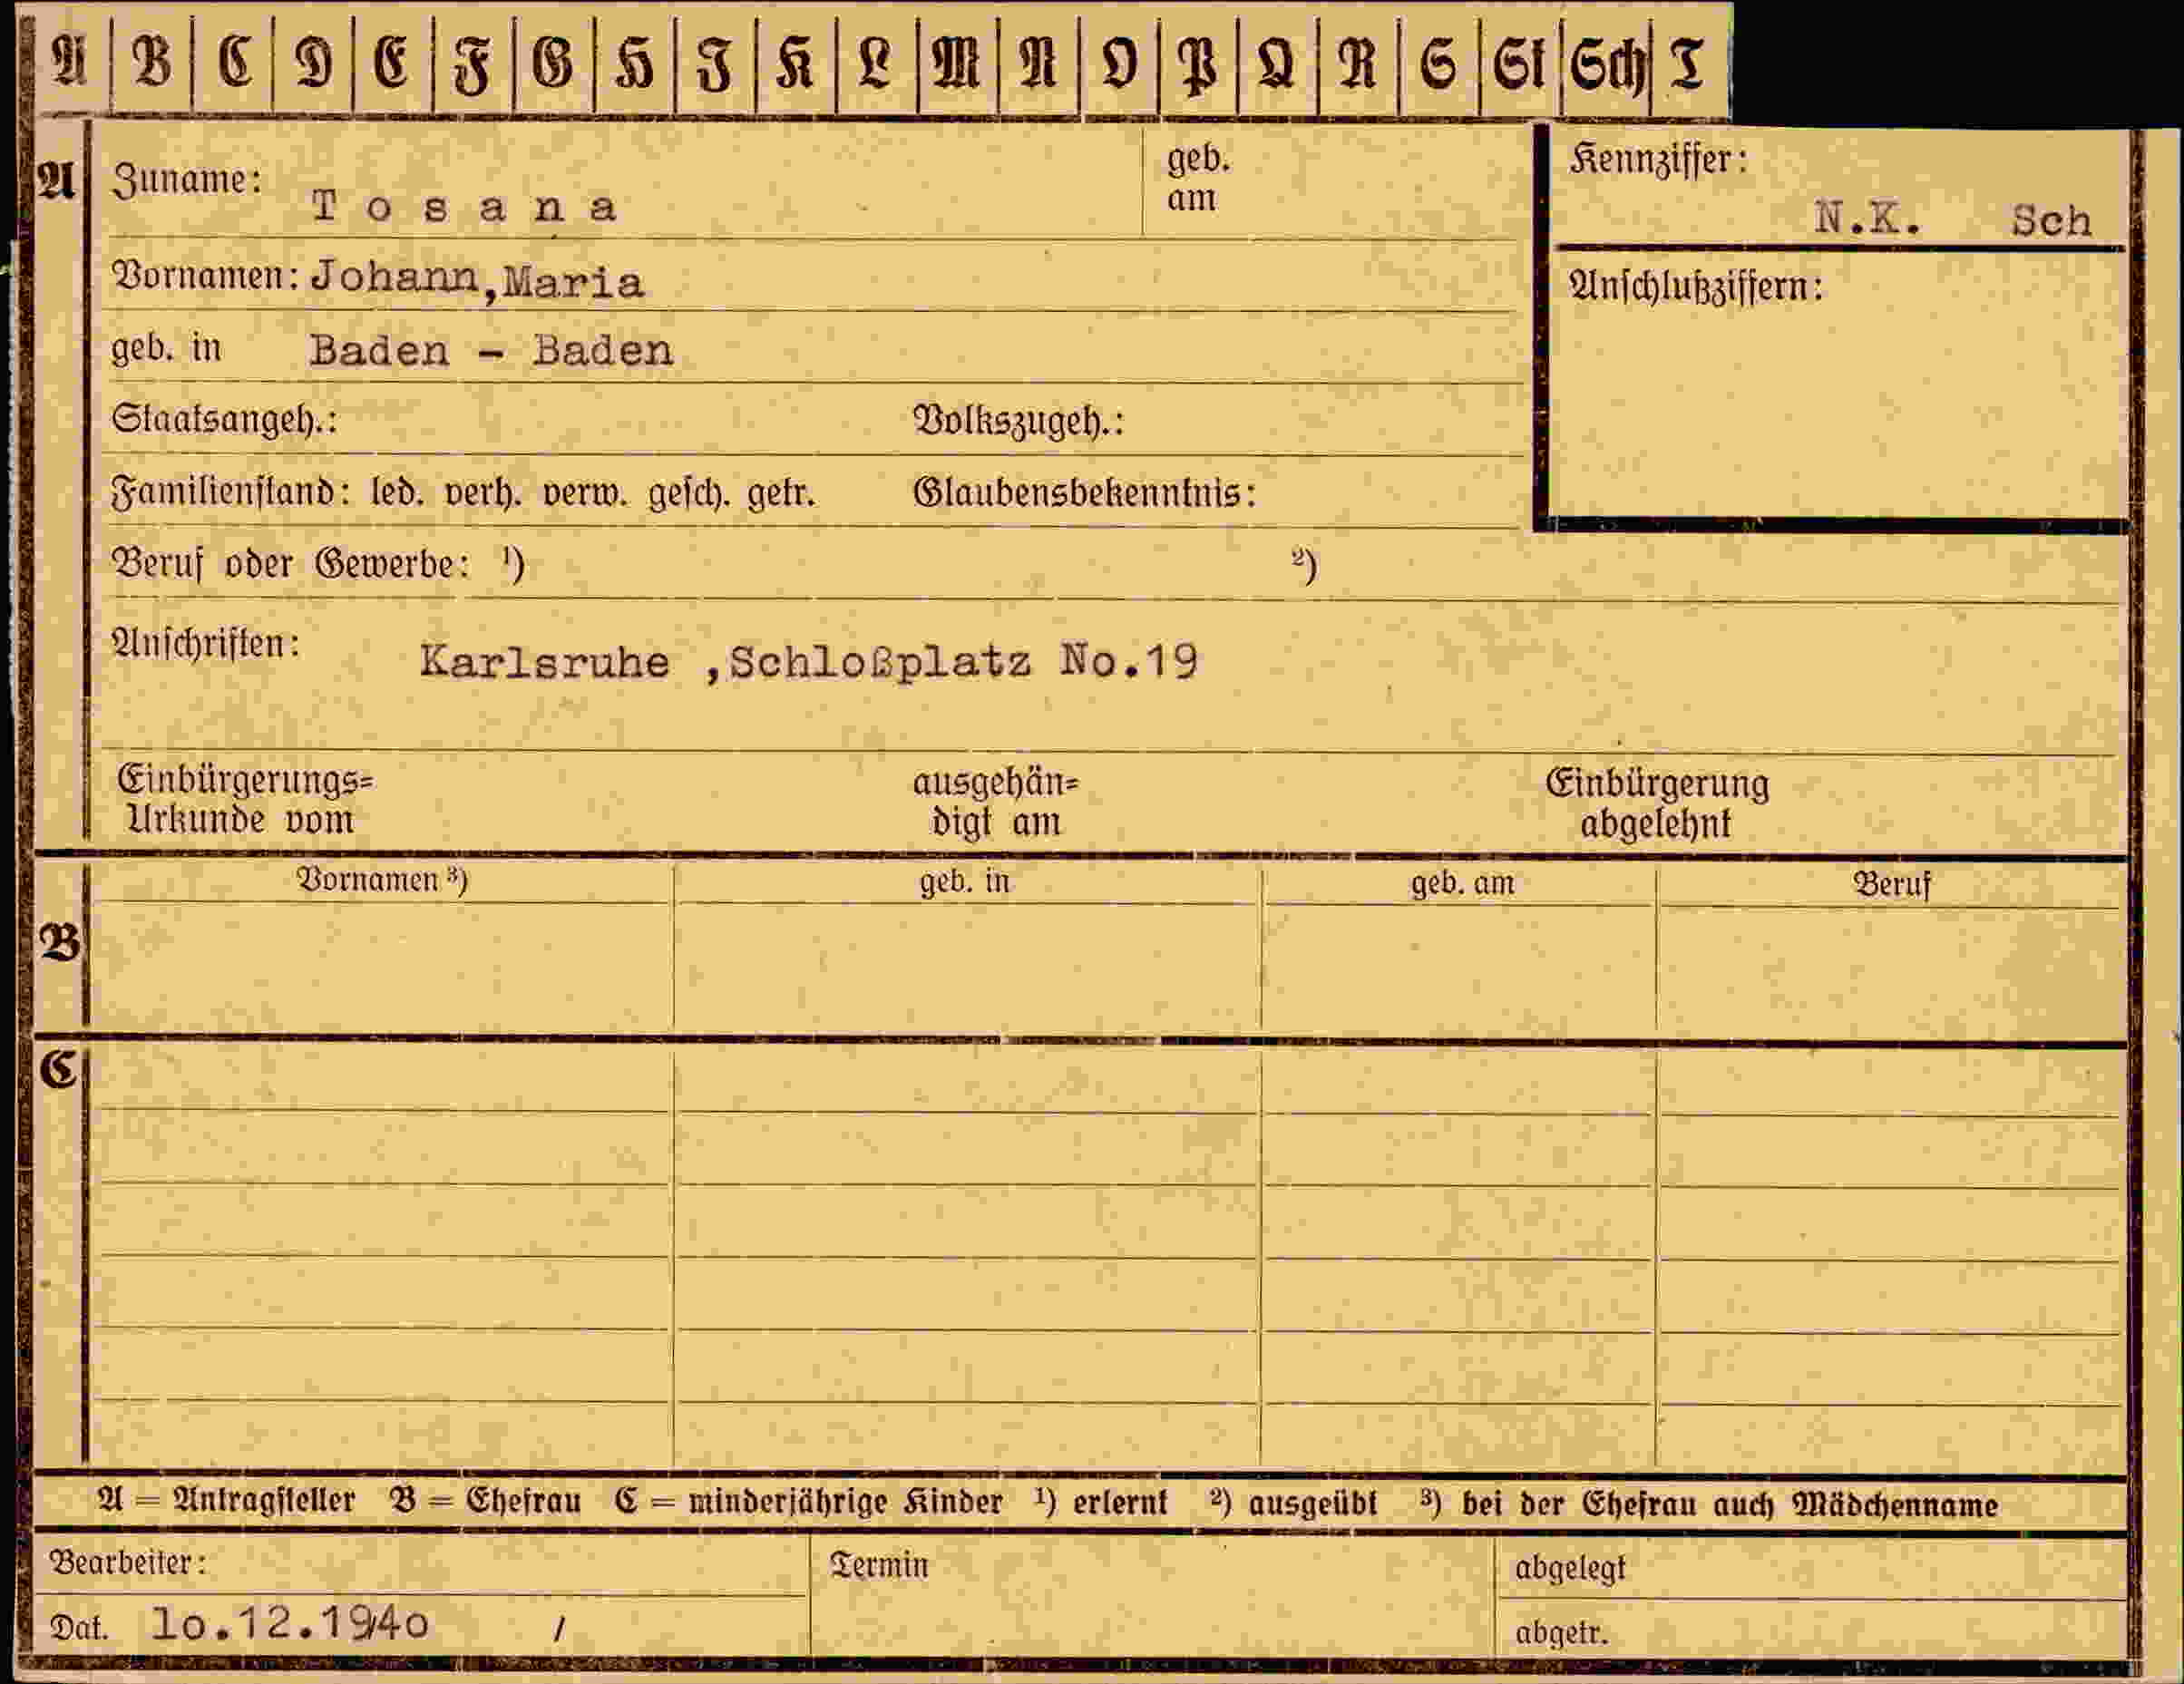 A B C D E F G H I K L M N O P Q R S St Sch T
A
Zuname: Tosana
geb. am
Kennziffer: N.K. Sch
Vornamen: Johann,Maria
Anschlußziffern:
geb. in Baden - Baden
Staatsangeh.: Volkszugeh.:
Familienstand: led. verh. verw. gesch. getr. Glaubensbekenntnis:
Beruf oder Gewerbe: ¹) ²)
Anschriften: Karlsruhe ,Schloßplatz No.19
Einbürgerungs= ausgehän= Einbürgerung
Urkunde vom digt am abgelehnt
Vornamen ³) geb. in geb. am Beruf
B
C
A = Antragsteller B = Ehefrau C = minderjährige Kinder ¹) erlernt ²) ausgeübt ³) bei der Ehefrau auch Mädchenname
Bearbeiter: Termin abgelegt
Dat. lo.12.194o / abgetr.